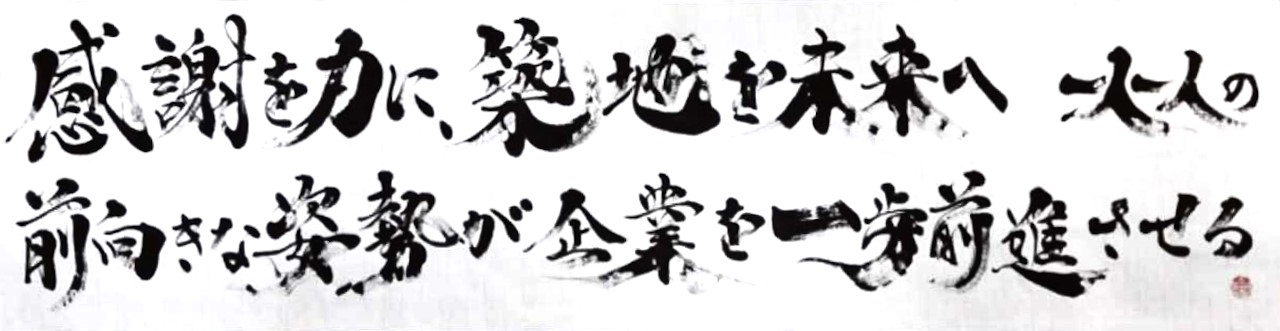 感謝を力に、築地を未来へ 一人一人の
前向きな姿勢が企業を一歩前進させる